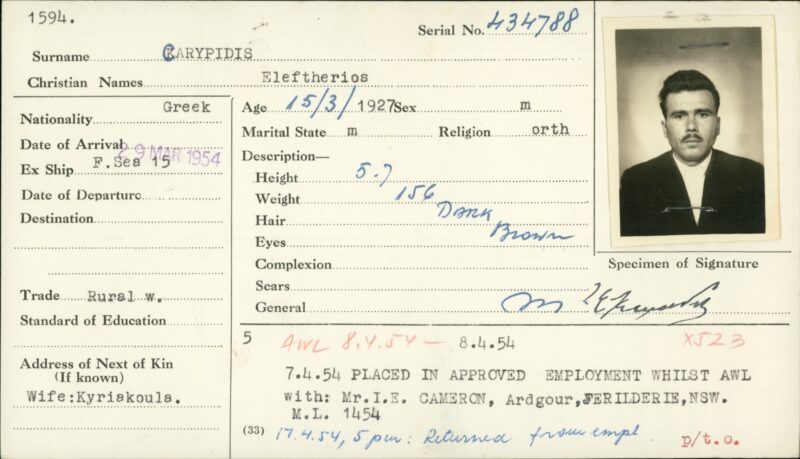 1594.
Serial No. 434788
Surname CARYPIDIS
Christian Names Eleftherios
Nationality Greek
Date of Arrival 29 MAR 1954
Ex Ship F.Sea 15
Date of Departure
Destination
Trade Rural w.
Standard of Education
Address of Next of Kin
(If known)
Wife:Kyriakoula.
Age 15/3/1927 Sex m
Marital State m Religion orth
Description—
Height 5.7
Weight 156
Hair Dark
Eyes Brown
Complexion
Scars
General m
Specimen of Signature
5 AWL 8.4.54 — 8.4.54 X523
7.4.54 PLACED IN APPROVED EMPLOYMENT WHILST AWL
with: Mr.I.E. CAMERON, Ardgour, JERILDERIE, NSW.
M.L. 1454
(33) 17.4.54, 5 pm: Returned from empl.
p/t.o.